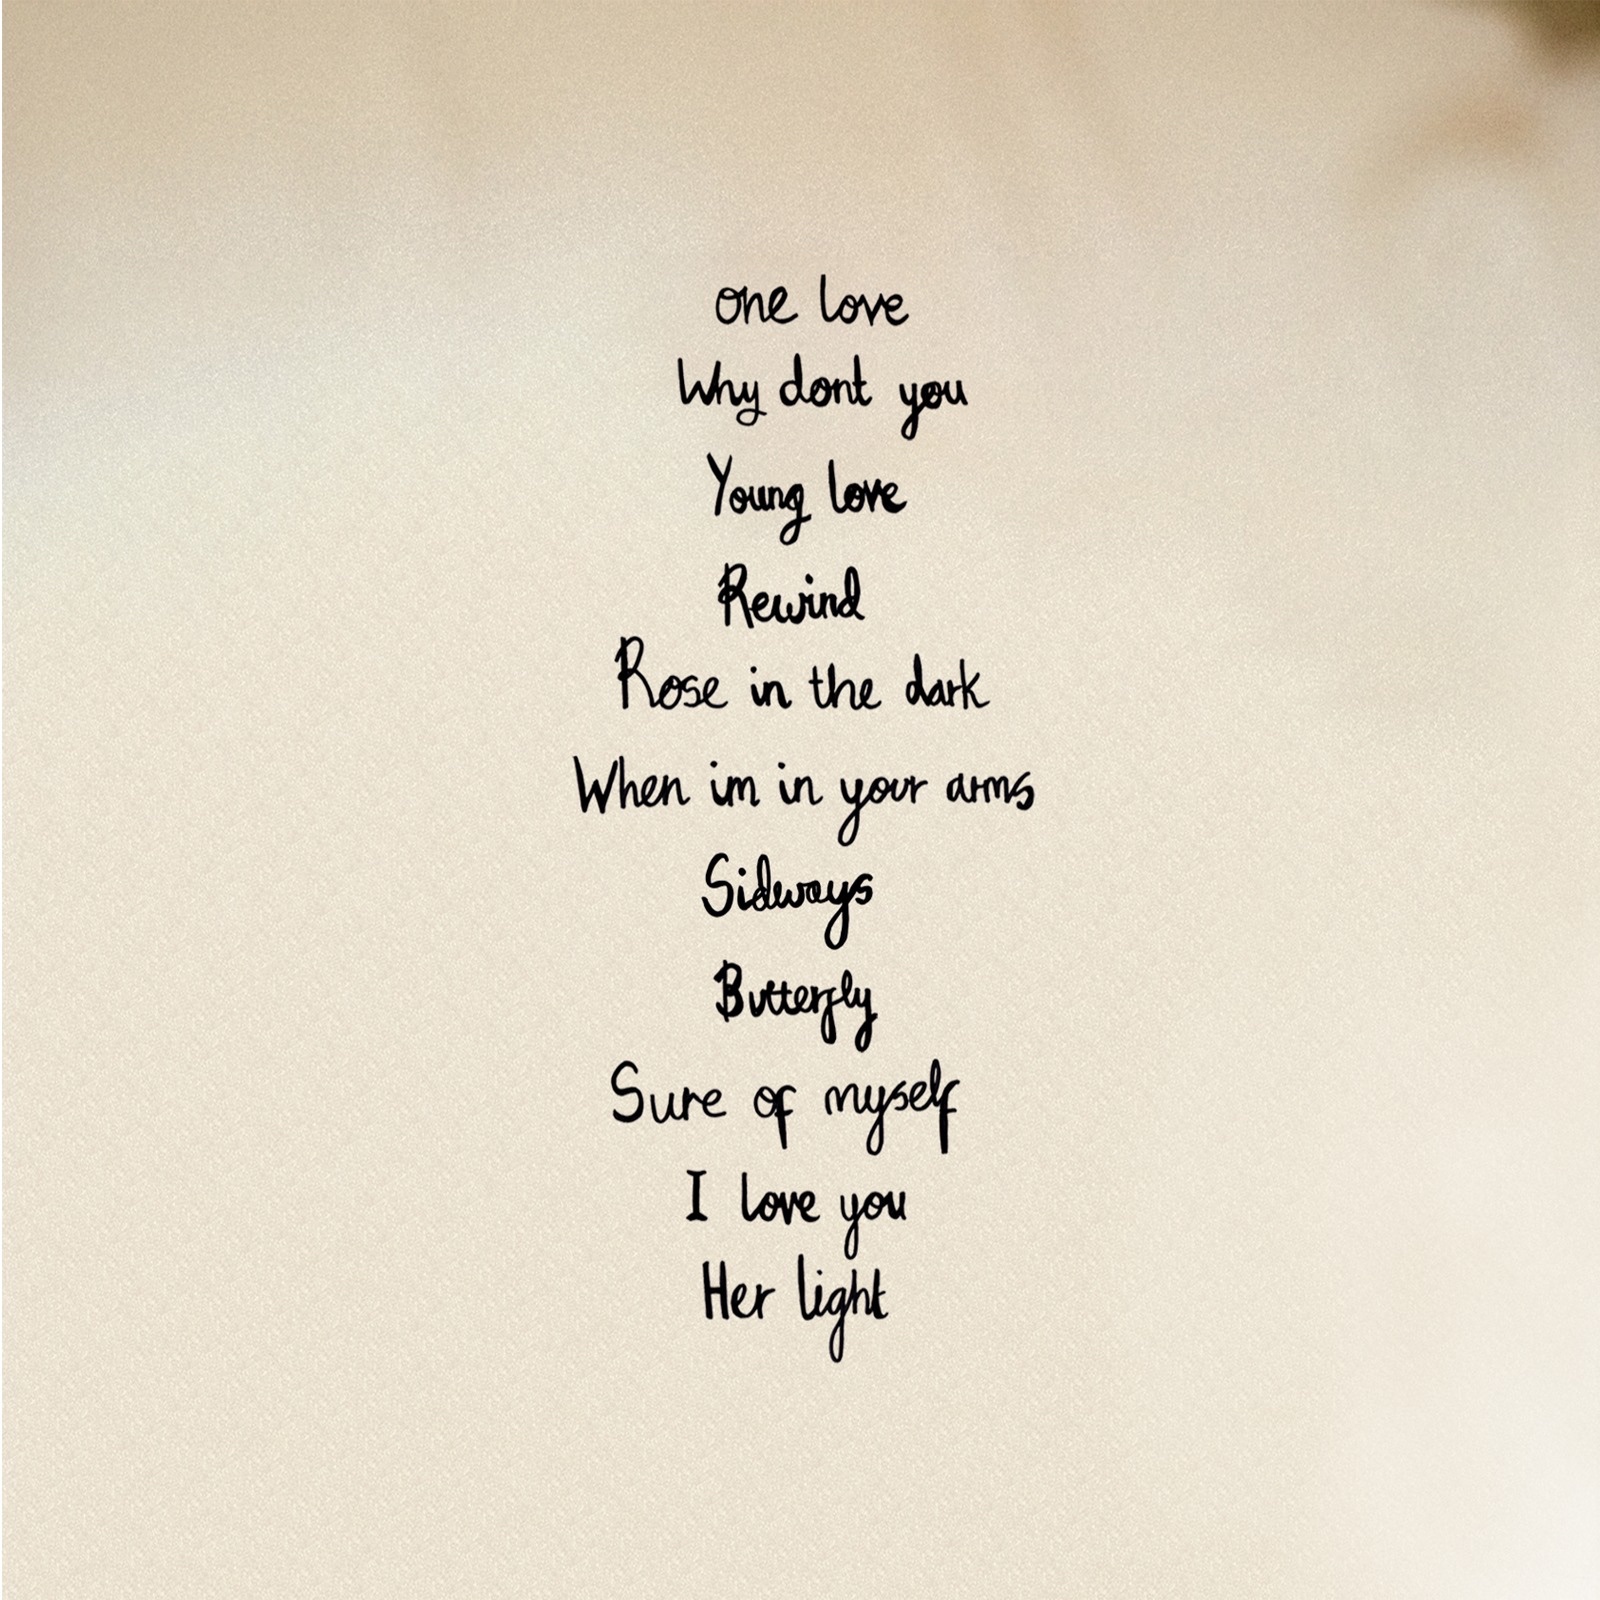 one love
Why dont you
Young love
Rewind
Rose in the dark
When im in your arms
Sidways
Butterfly
Sure of myself
I love you
Her light